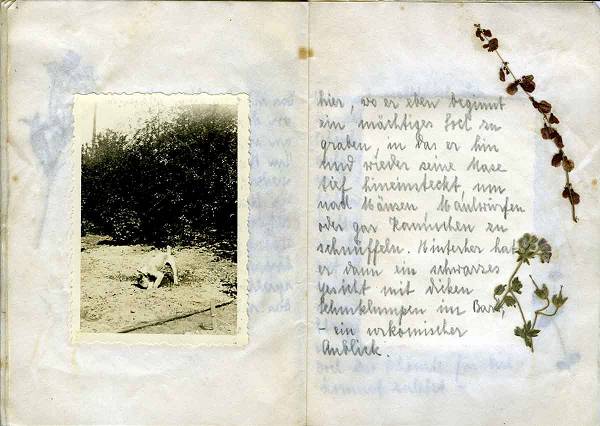 hier, wo er eben beginnt
ein mächtiges Loch zu
graben, in das er hin
und wieder seine Nase
tief hineinsteckt, um
nach Mäusen Maulwürfen
oder gar Kaninchen zu
schnüffeln. Hinterher hat
er dann ein schwarzes
Gesicht mit dicken
Lehmklumpen im Bart,
- ein urkomischer
Anblick.